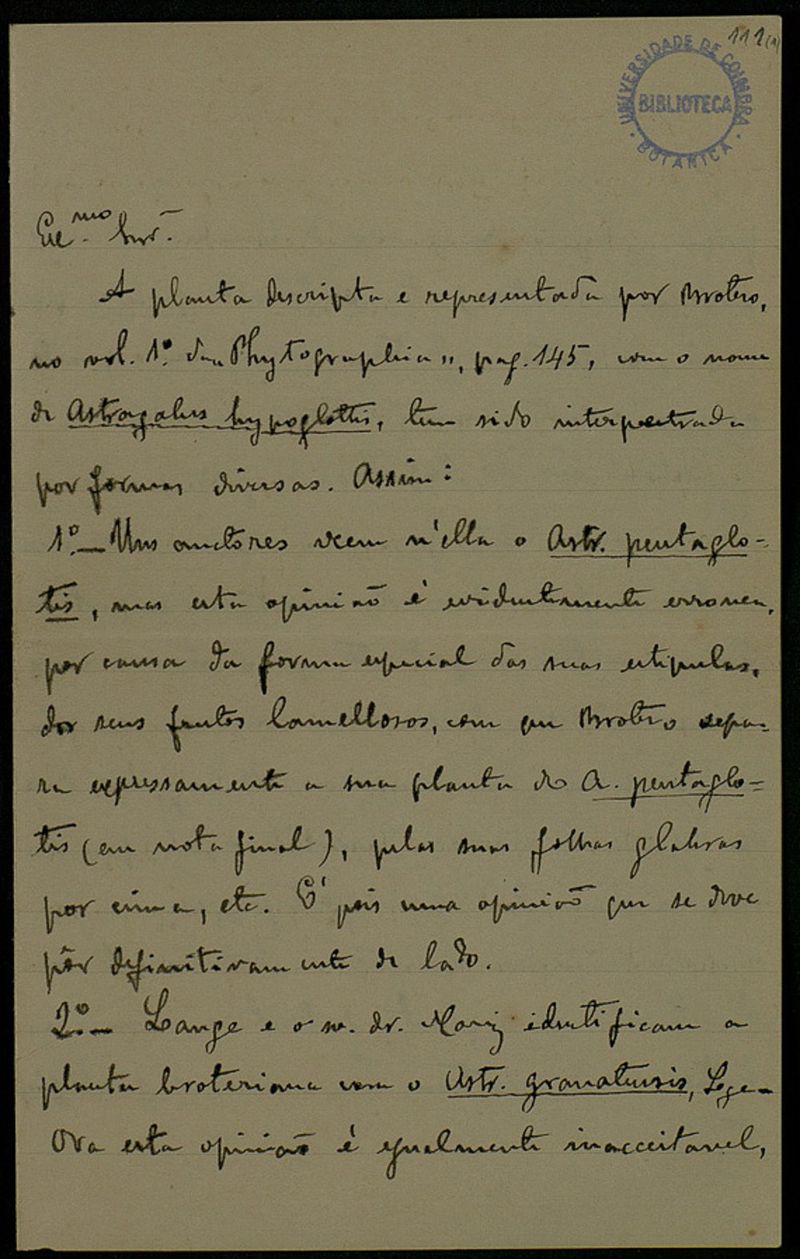 111(a)
UNIVERSIDADE DE COIMBRA
BIBLIOTECA
BOTANICA
Ex.mo Snr.
A planta descripta e representada por Brotero,
no vol. 1.º da "Phytographia", pag. 145, com o nome
de Astragalus hypoglottis, tem sido interpretada
por formas diversas. Assim:
1.º — Uns auctores veem n'ella o Astr. pentaglo-
tis, mas esta opinião é evidentemente erronea,
por causa da forma especial das suas estipulas,
dos seus frutos lamellosos, com que Brotero sepa-
ra expressamente a sua planta do A. pentaglo=
tis (em nota final), pelas suas folhas glabras
por cima, etc. E' pois uma opinião que se deve
pôr definitivamente de lado.
2.º — Lange e o sr. dr. Mariz identificam a
planta broteriana com o Astr. granatensis, Lge.
Ora esta opinião é egualmente inacceitavel,